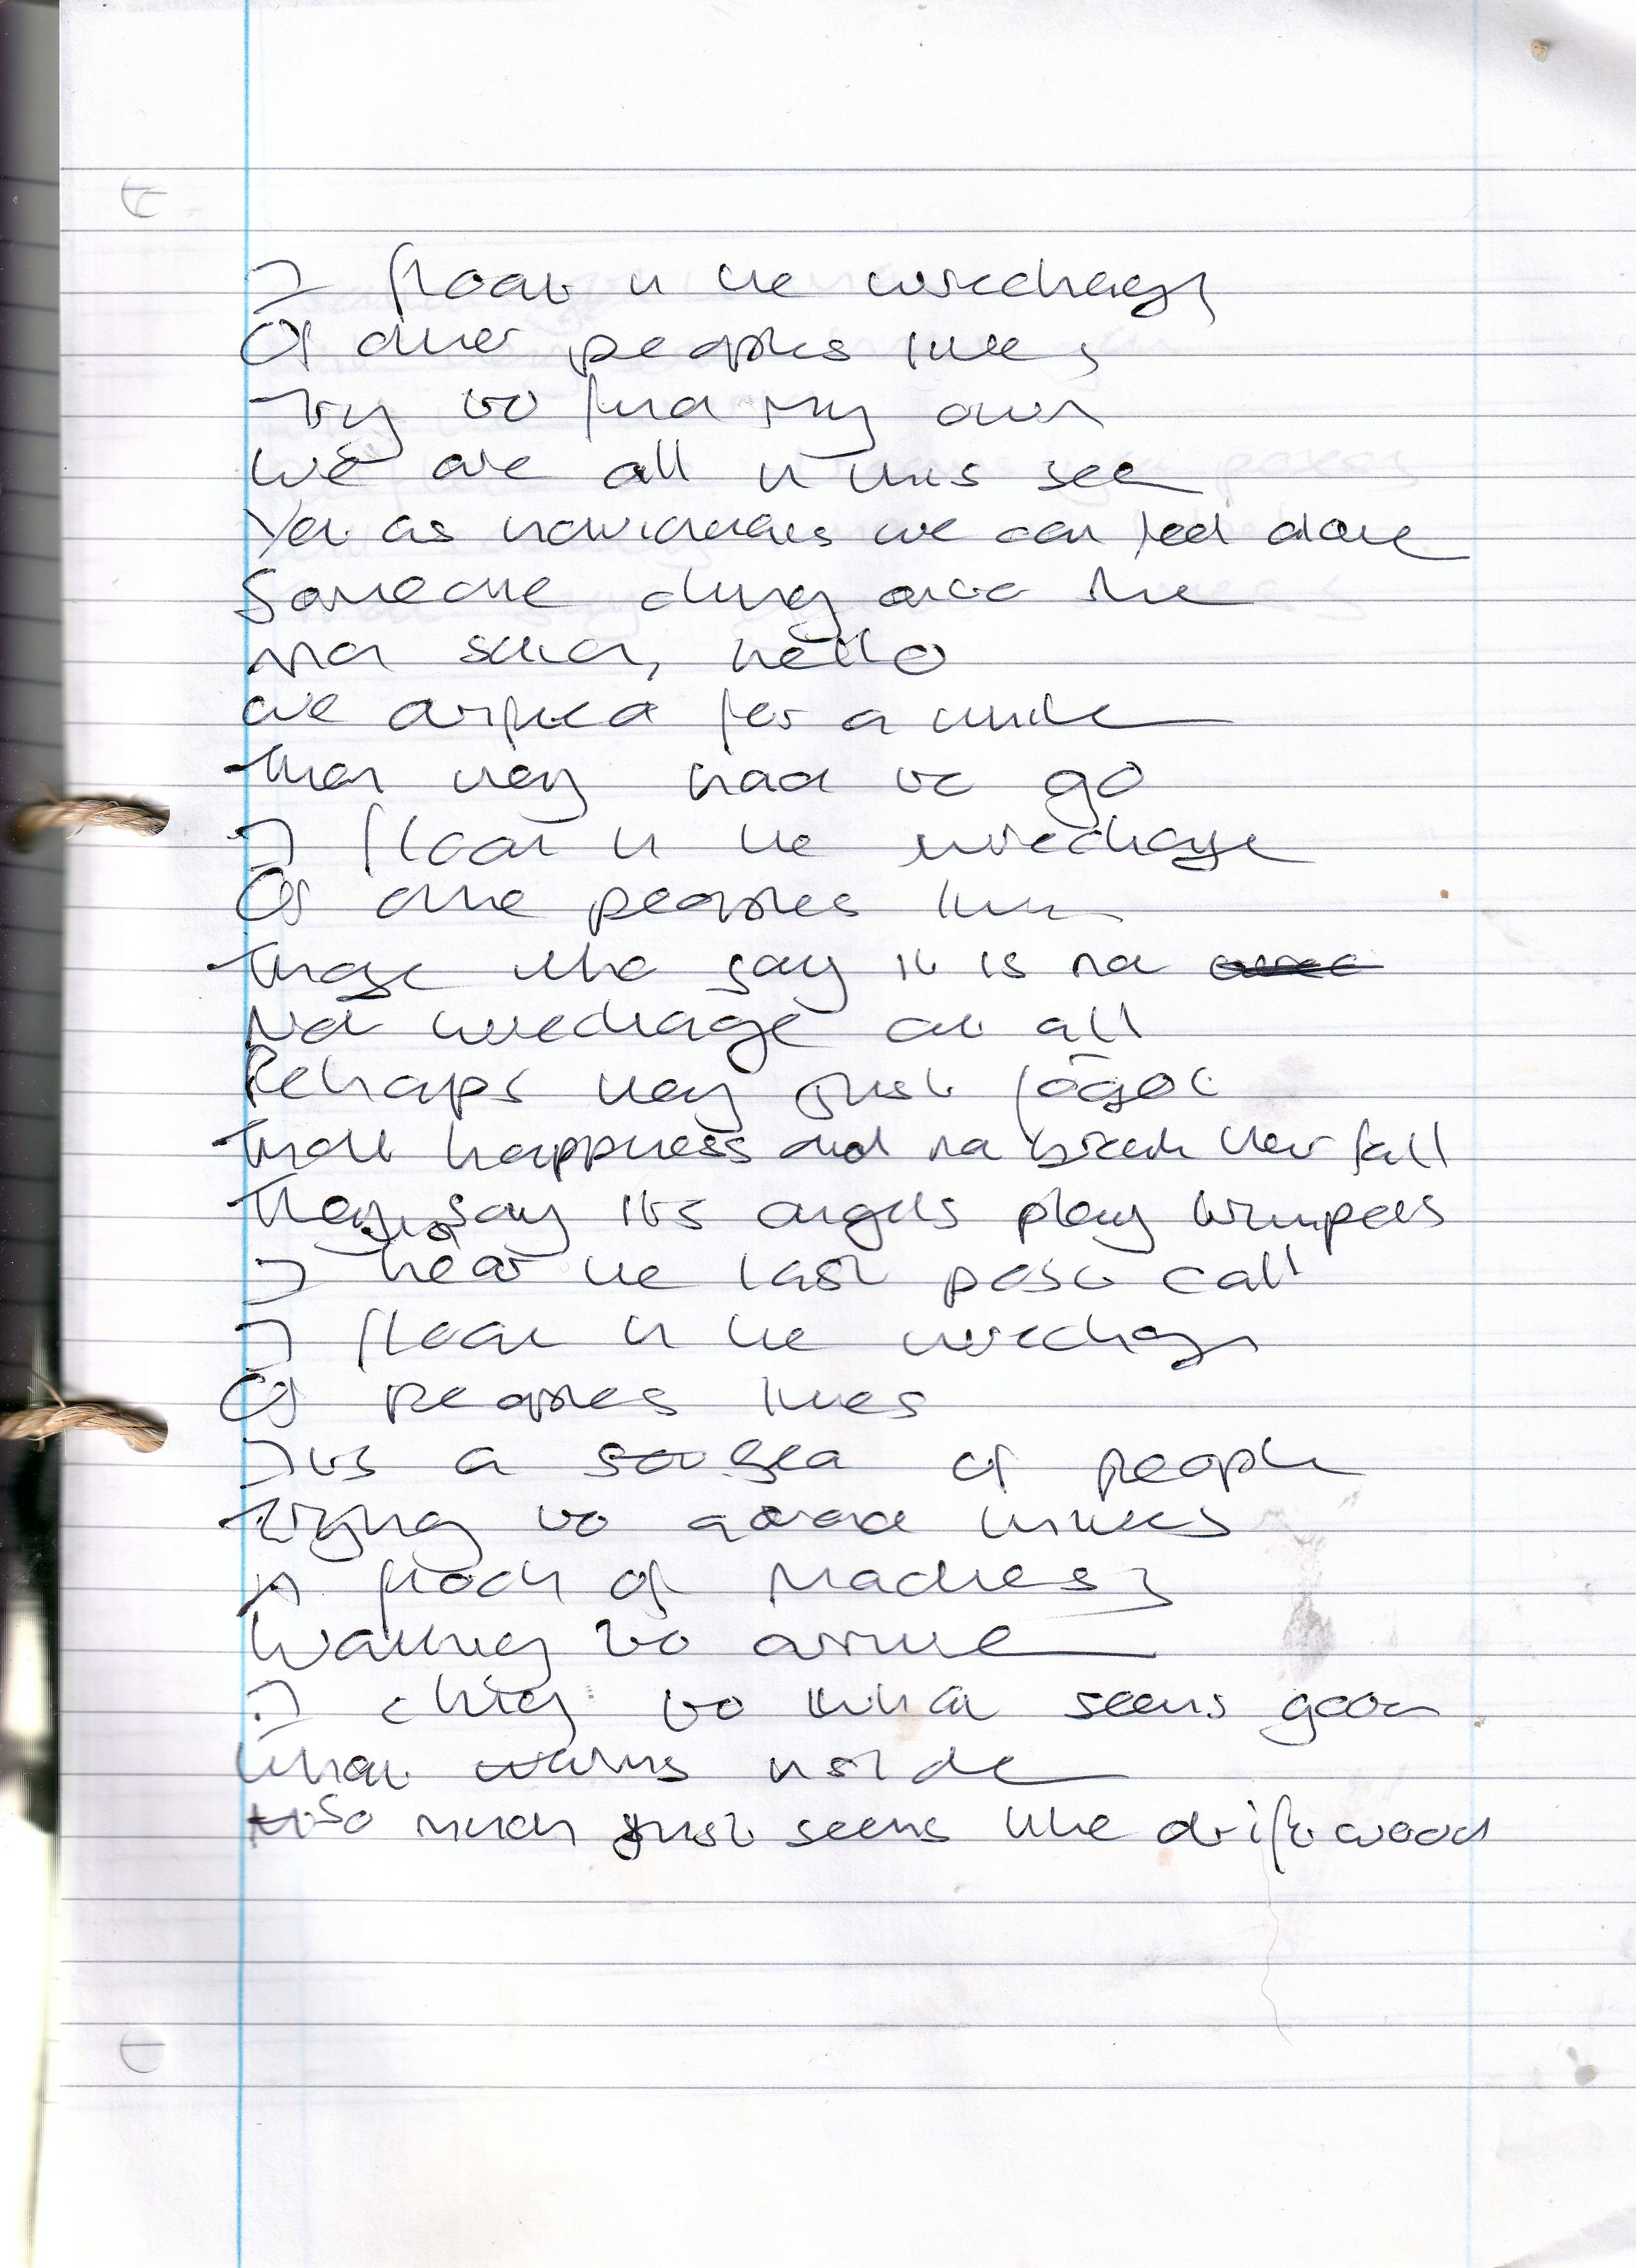 I float in the wreckage
Of other peoples lives
Try to find my own
We are all in this sea
Yet as individuals we can feel alone
Someone clung onto me
And said, hello
We drifted for a while
Then they had to go
I float in the wreckage
Of other peoples lives
Those who say it is not
Not wreckage at all
Perhaps they just forgot
That happiness did not break their fall
They say its angels play trumpets
I hear the last post call
I float in the wreckage
Of peoples lives
Its a sea of people
Trying to avoid
A flock of madness
Waiting to arrive
I cling to what seems good
What warms inside
So much just seems like driftwood